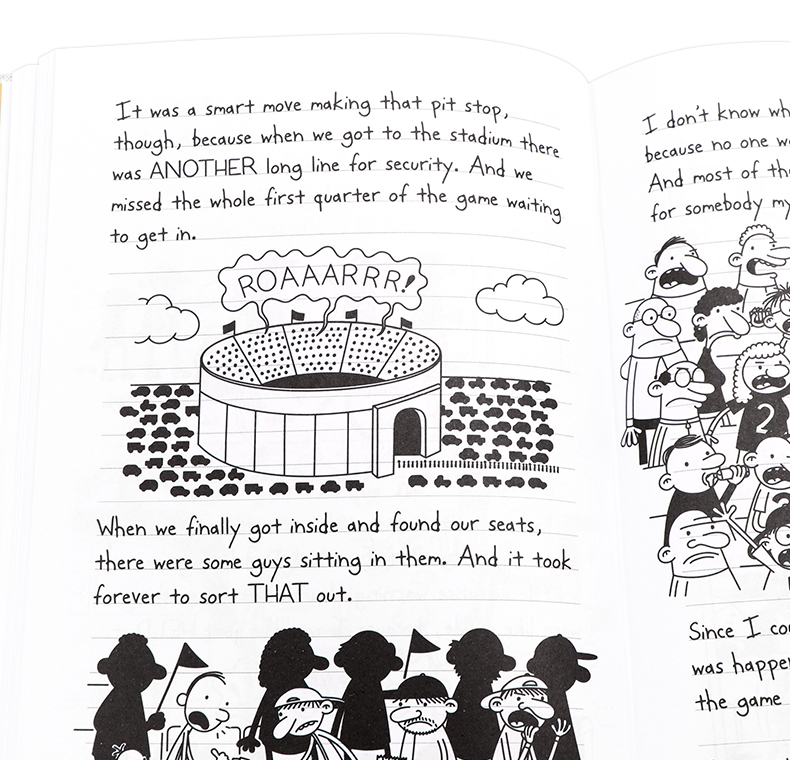 It was a smart move making that pit stop,
though, because when we got to the stadium there
was ANOTHER long line for security. And we
missed the whole first quarter of the game waiting
to get in.
ROAAARRR!
When we finally got inside and found our seats,
there were some guys sitting in them. And it took
forever to sort THAT out.
I don't know
because no one
And most of
for somebody
2
Since I
was
the game